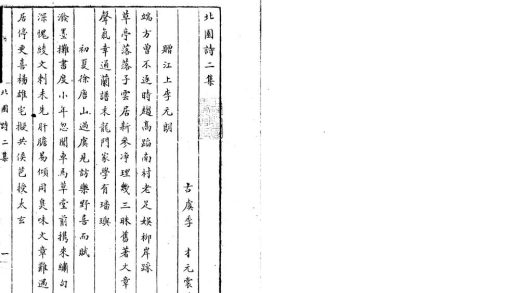 北園詩二集
古虞李　才元震
贈江上李元朗
端方曾不迄時趨高蹈南村老足娛柳岸疎
草亭落落子雲居新參淨理幾三昧舊著文章
聲氣幸通蘭譜末龍門家學有璠璵
初夏徐唐山過虞見訪樂野喜而賦
潑墨攤書度小年忽聞車馬草堂前攜來繡句
深愧綾文刺未先肝膽易傾同臭味文章難遇
居停更喜楊雄宅擬共侯芭授太玄
北園詩二集
一